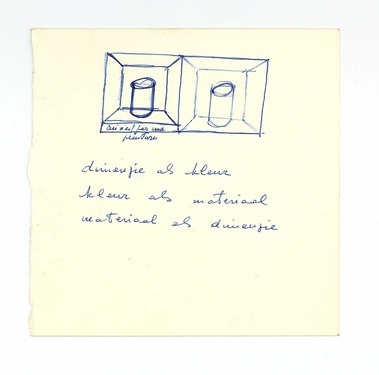 ceci n'est pas une
peinture
dimensie als kleur
kleur als materiaal
materiaal als dimensie